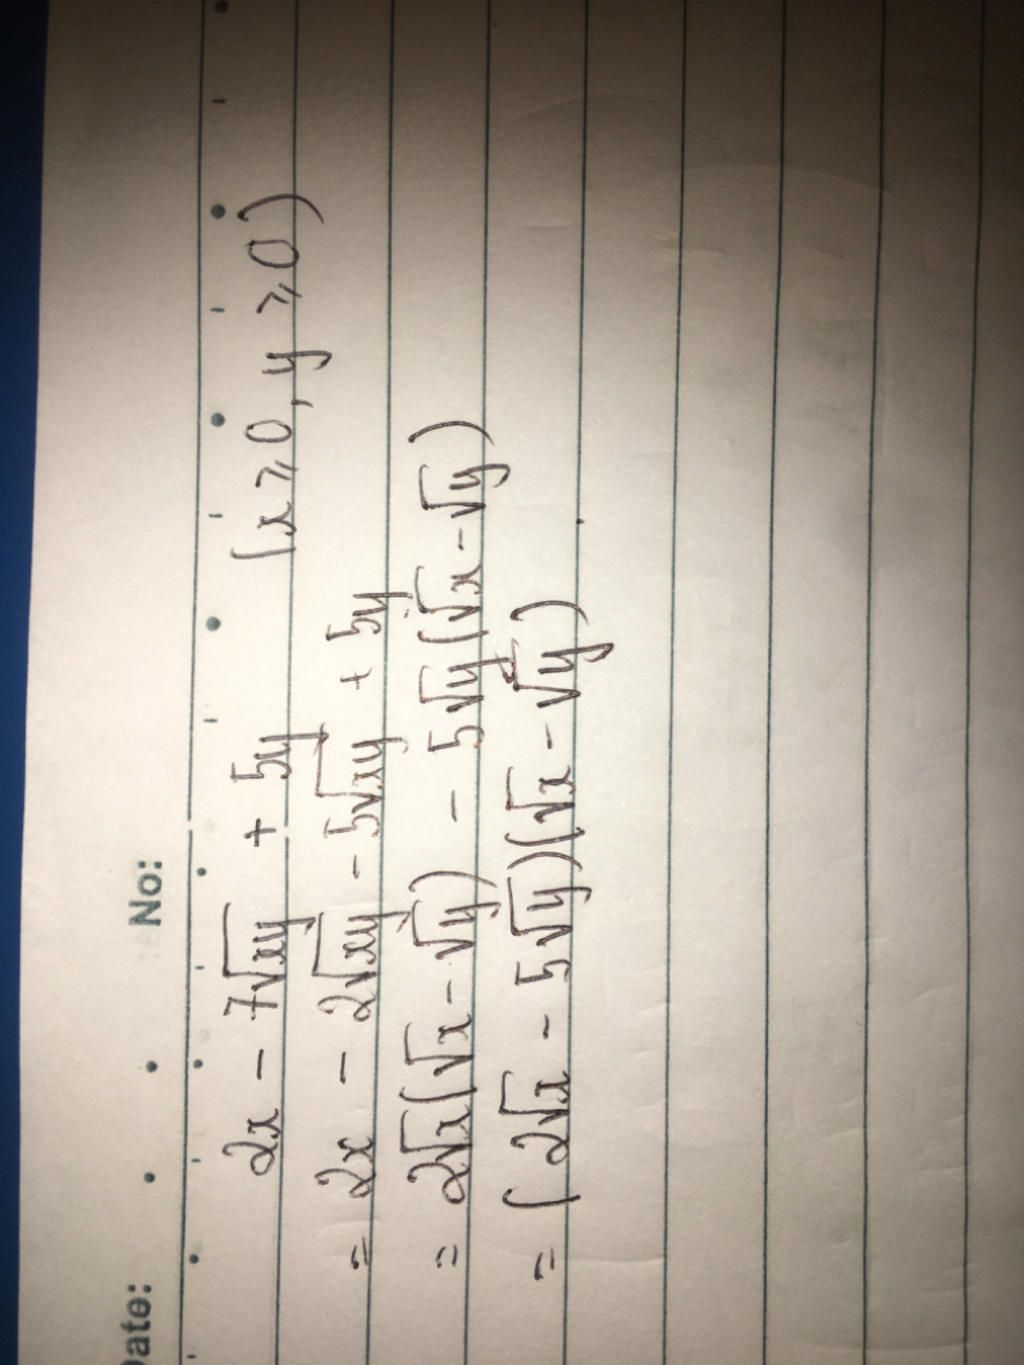 Date: No:
2x - 7√xy + 5y (x ≥ 0, y ≥ 0)
= 2x - 2√xy - 5√xy + 5y
= 2√x(√x - √y) - 5√y(√x - √y)
= (2√x - 5√y)(√x - √y)